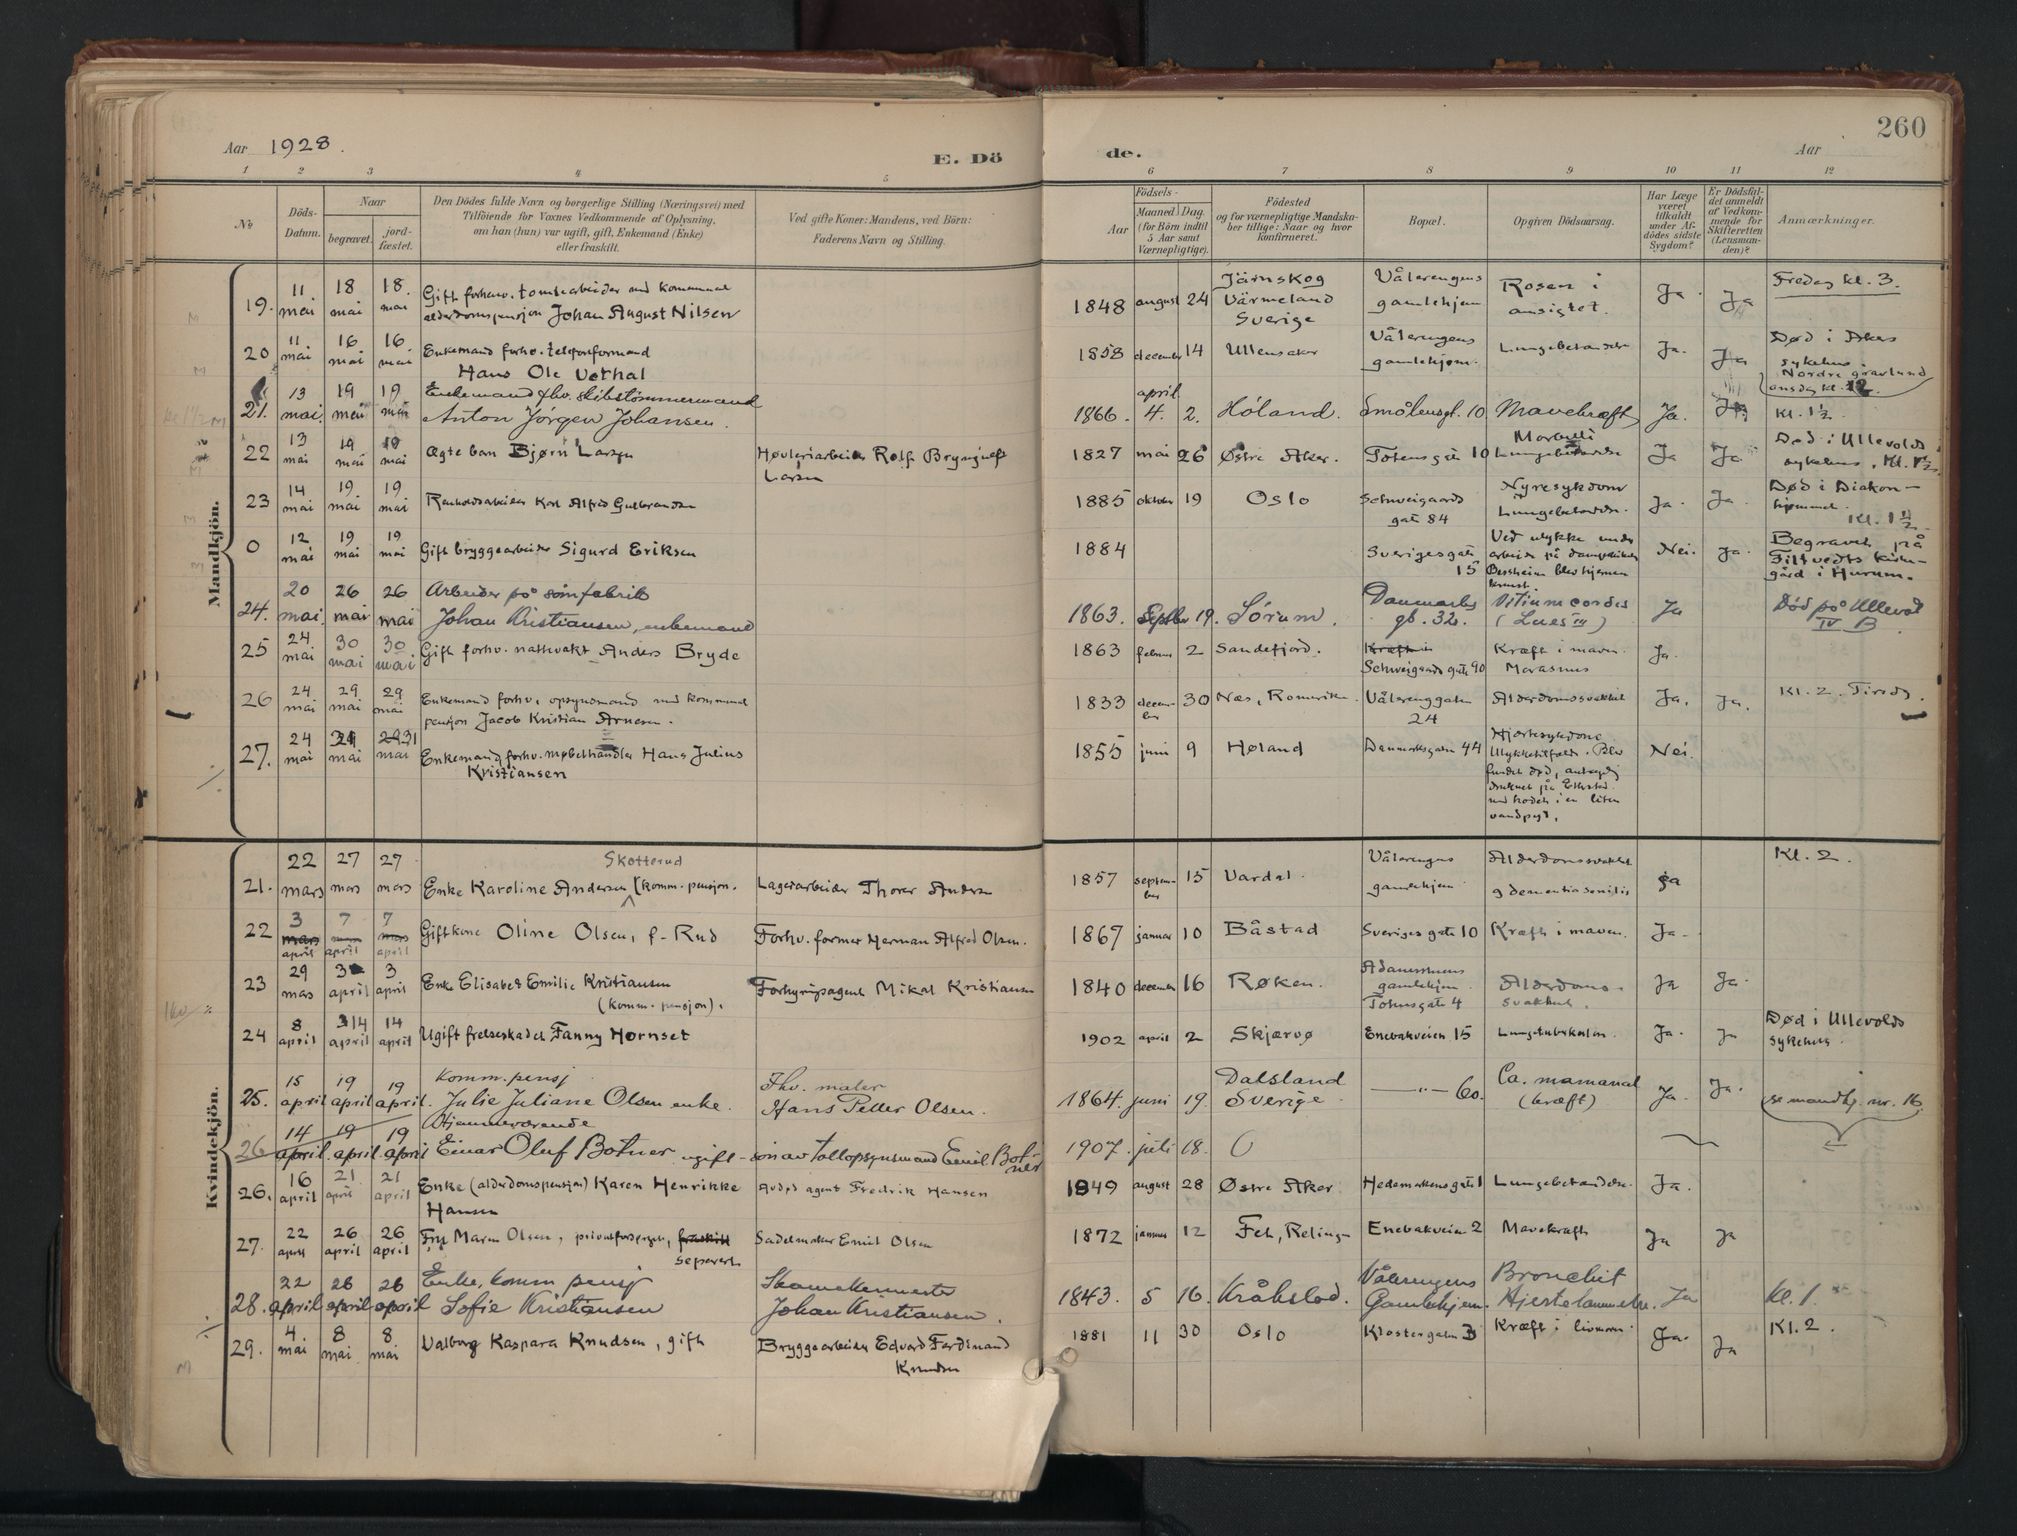 260
Aar 1928.
E. Dö
de.
Aar
1 2 3 4 5 6 7 8 9 10 11 12
№
Döds-
Datum.
Naar
begravet.
jord-
fæstet.
Den Dödes fulde Navn og borgerlige Stilling (Næringsvei) med
Tilföiende for Voxnes Vedkommende af Oplysning,
om han (hun) var ugift, gift, Enkemand (Enke)
eller fraskilt.
Ved gifte Koner: Mandens, ved Börn:
Faderens Navn og Stilling.
Födsels-
Aar
Maaned
Dag.
(for Börn indtil
5 Aar samt
Værnepligtige).
Födested
og for værnepligtige Mandska-
ber tillige: Naar og hvor
konfirmeret.
Bopæl.
Opgiven Dödsaarsag.
Har Læge
været
tilkaldt
under Af-
dödes sidste
Sygdom?
Er Dödsfal-
det anmeldt
af Vedkom-
mende for
Skifteretten
(Lensman-
den)?
Anmærkninger.
Mandkjön.
19. 11 mai 18 mai 18. mai
Gift forhenv. tomtearbeider med kommunal
alderdomspensjon Johan August Nilsen
1848 august 24 Järnskog
Värmeland
Sverige
Vålerengens
gamlehjem
Rosen i
ansigtet.
Ja. Ja
Fredag kl. 3.
20 11 mai 16 mai 16. mai
Enkemand forhv. telefonformand
Hans Ole Vethal
1858 december 14 Ullensaker
Vålerengens
gamlehjem.
Lungebetændelse
Ja. Ja
Død i Akers
sykehus.
Nordre gravlund
onsdag kl. 12.
21. 13 mai. 19 mai 19 mai
Enkemand fhv. skibstømmermand
Anton Jörgen Johansen.
1866. april 4. 2. Höland. Smålensgt. 10 Mavekræft Ja. Ja
Kl. 1½
22 13 mai 19 mai 19 mai
Ægte barn Bjørn Larsen
Høvleriarbeider Rolf Brynjulf
Larsen
1827 mai 26 Østre Aker. Totensgate 10
Morbilli
Lungebetændelse
Ja Ja
Død i Ullevolds
sykehus, Kl. 1½
23 14 mai 19 mai 19 mai
Renholdsarbeider Karl Alfred Gulbrandsen
1885 oktober 19 Oslo
Schweigaards
gate 84
Nyresykdom
Lungebetændelse.
Ja. Ja.
Død i Diakon-
hjemmet.
Kl. 1½
0 12 mai 19 mai 19 mai
Gift bryggearbeider Sigurd Eriksen
1884
Sverigesgate
15
Ved ulykke under
arbeide på dampskibet
blev hjernen
knust.
Nei. Ja.
Begravet på
Filtvedts kirke-
gård i Hurum.
24. 20 mai. 26 mai 26 mai
Arbeider på sömfabrik
Johan Kristiansen, enkemand
1863. Septbr 19. Sörum.
Danmarks
gt. 32.
Vitium cordis
(Lues III)
Ja
Död på Ullevol
IV B
25 24 mai 30 mai 30 mai
Gift forhv. nattevakt Anders Bryde
1863 februar 2 Sandefjord.
Schweigaards gate 90
Kræft i maven.
Marasmus
Ja.
26 24 mai 29 mai 29 mai
Enkemand forhv. opsynsmand med kommunal
pensjon Jacob Kristian Arnesen.
1833 decem-
ber 30 Næs, Romerike.
Vålerenggaten
24
Alderdomssvakhet
Ja. Ja.
Kl. 2. Tirsdag.
27. 24 mai 31 mai 31 mai
Enkemand forhv. møbelhandler Hans Julius
Kristiansen
1855 juni 9 Høland Danmarksgaten 44
Hjertesykdom
Ulykkestilfælde. Blev
fundet død, antagelig
druknet på Ekeberg
med hodet i en liten
vandpyt.
Nei.
Kvindekjön.
21. 22 mars 27 mars 27 mars
Skotterud
Enke Karoline Andersen [komm. pensjon.
Lagerarbeider Thorer Andersen
1857 septem-
ber 15 Vardal.
Vålerengens
gamlehjem
Alderdomssvakhet
og dementia senilis
Ja
Kl. 2.
22 3 mars april 7 mars april 7 mars april
Gift kone Oline Olsen, f. Rud
Forhv. former Herman Alfred Olsen.
1867 januar 10 Båstad Sverigesgate 10 Kræft i maven. Ja.
23 29 mars 3 april 3 april
Enke Elisabet Emilie Kristiansen
(komm. pensjon).
Forhyringsagent Mikal Kristiansen
1840 december 16 Røken.
gamlehjem
Totensgate 4
Alderdoms-
svakhet.
Ja Ja.
24 8 april 14 april 14 april
Ugift frelseskadet Fanny Hornset
1902 april 2 Skjærvø Enebakveien 15 Lungetuberkulose. Ja. Ja
Død i Ullevolds
sykehus.
25. 15 april 19 april 19 april.
Komm. pensj
Julie Juliane Olsen enke.
Fhv. maler
Hans Petter Olsen.
1864. juni 19. Dalsland
Sverige.
—"— 60.
Ca. mamanal
(kræft)
Ja. Ja.
se mandkj. nr. 16.
26 14 april. 19 april. 19 april
Hjemmeværende
Einar Oluf Botner ugift - sön av tollopsynsmand Emil Bot-
ner
1907. juli 18.
26. 16 april 21 april 21 april
Enke (alderdomspensjon) Karen Henrikke
Hansen
Avdød agent Fredrik Hansen
1849 august 28 Østre Aker Hedemarkensgate 1 Lungebetændelse. Ja.
27. 22 april 26 april 26 april
Fru Maren Olsen, privatforsørget, fraskilt
separert
Sadelmaker Emil Olsen
1872 januar 12 Fet, Reling- Enebakveien 2 Mavekræft Ja Ja
28. 22 april 26 april 26 april
Enke, komm pensj
Sofie Kristiansen
Johan Kristiansen.
1843. 5 16. Kråkstad.
Vålerengens
Gamlehjem.
Bronchit
Hjertelammelse.
Ja
Kl. 1.
29. 4 mai 8 mai 8 mai
Valborg Kaspara Knudsen, gift
Bryggearbeider Edvard Ferdinand
Knudsen
1881 11 30 Oslo Klostergaten 3 Kræft i livmoren. Ja. Ja
Kl. 2.